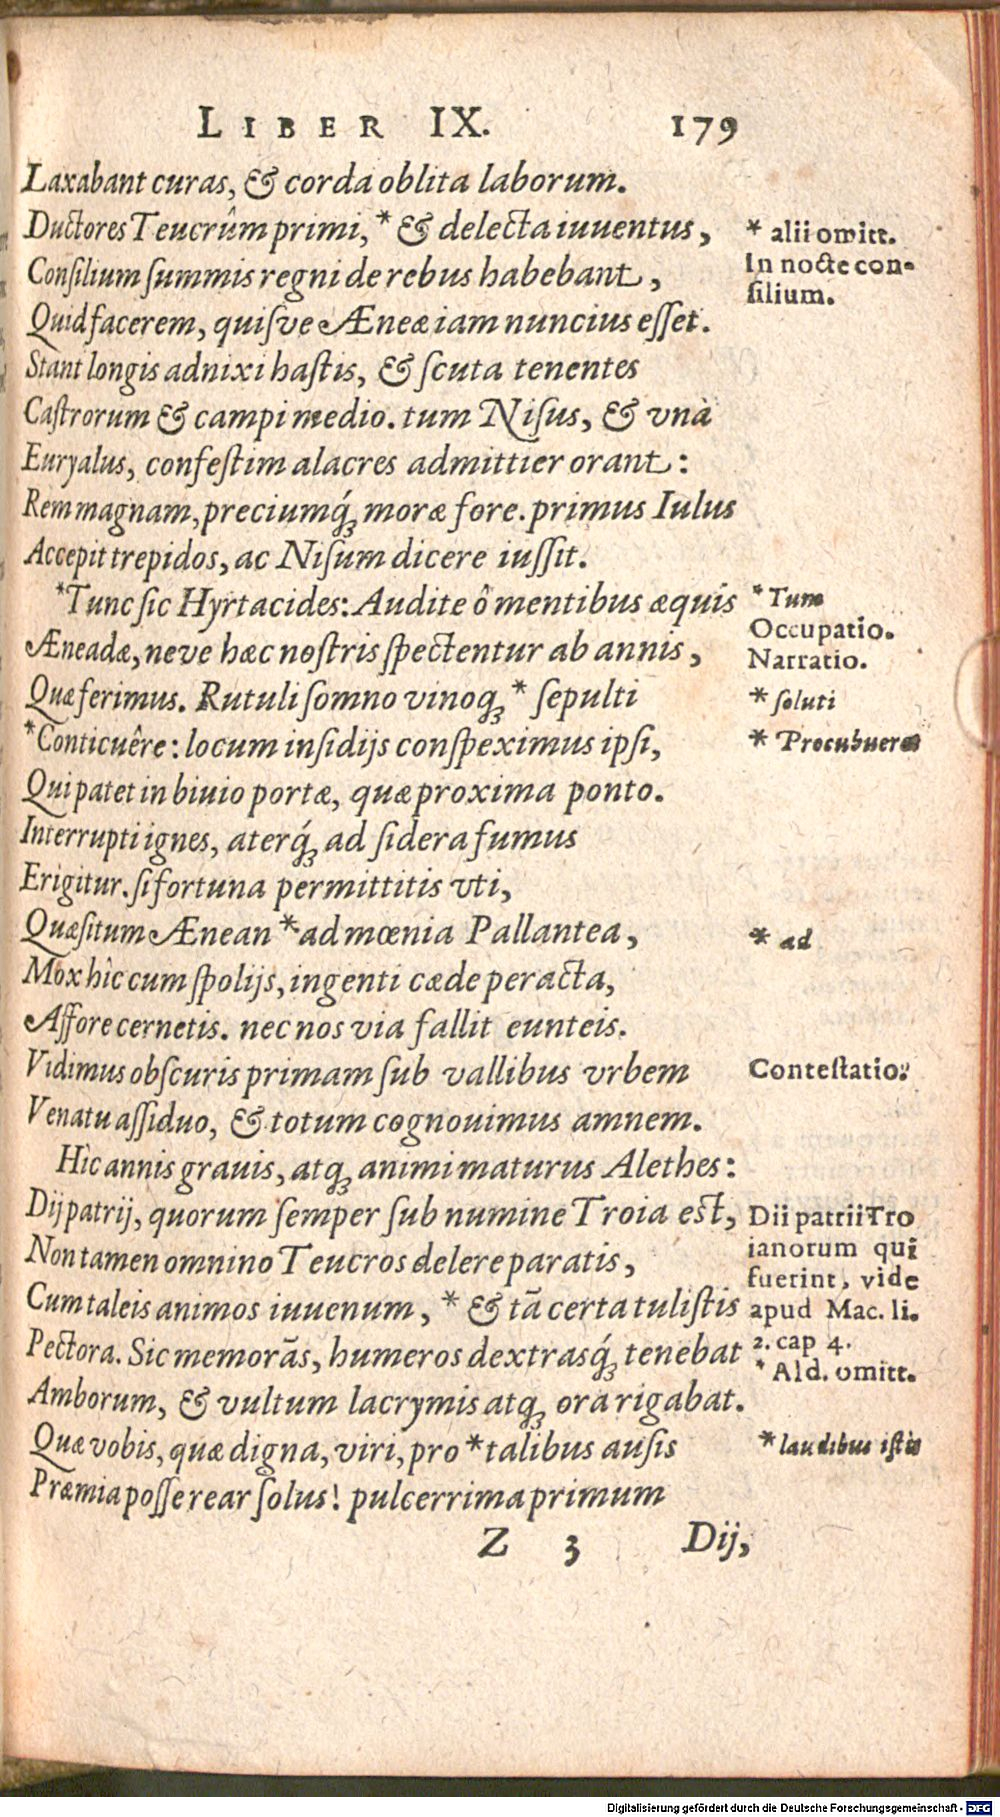 LIBER IX. 179
Laxabant curas, & corda oblita laborum.
Ductores Teucrûm primi, * & delecta iuuentus,
* alii omitt.
Consilium summis regni de rebus habebant,
In nocte con-
silium.
Quid facerem, quisve Æneæ iam nuncius esset.
Stant longis adnixi hastis, & scuta tenentes
Castrorum & campi medio. tum Nisus, & vnà
Euryalus, confestim alacres admittier orant:
Rem magnam, preciumq́; moræ fore. primus Iulus
Accepit trepidos, ac Nisum dicere iussit.
*Tunc sic Hyrtacides: Audite ô mentibus æquis
* Tum
Occupatio.
Æneadæ, neve hæc nostris spectentur ab annis,
Narratio.
Quæ ferimus. Rutuli somno vinoq; * sepulti
* soluti
*Conticuêre: locum insidijs conspeximus ipsi,
* Procubuere
Qui patet in biuio portæ, quæ proxima ponto.
Interrupti ignes, aterq́; ad sidera fumus
Erigitur. si fortuna permittitis vti,
Quæsitum Ænean * ad mœnia Pallantea,
* ad
Mox hîc cum spolijs, ingenti cæde peracta,
Affore cernetis. nec nos via fallit eunteis.
Vidimus obscuris primam sub vallibus vrbem
Contestatio.
Venatu assiduo, & totum cognouimus amnem.
Hîc annis grauis, atq; animi maturus Alethes:
Dij patrij, quorum semper sub numine Troia est,
Dii patrii Tro
Non tamen omnino Teucros delere paratis,
ianorum qui
fuerint, vide
Cum taleis animos iuuenum, * & tã certa tulistis
apud Mac. li.
Pectora. Sic memorãs, humeros dextrasq́; tenebat
2. cap 4.
* Ald. omitt.
Amborum, & vultum lacrymis atq; ora rigabat.
Quæ vobis, quæ digna, viri, pro * talibus ausis
* laudibus istis
Præmia posse rear solus! pulcerrima primum
Z 3 Dij,
Digitalisierung gefördert durch die Deutsche Forschungsgemeinschaft - DFG